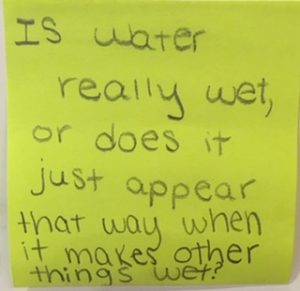 Is water
really wet,
or does it
just appear
that way when
it makes other
things wet?